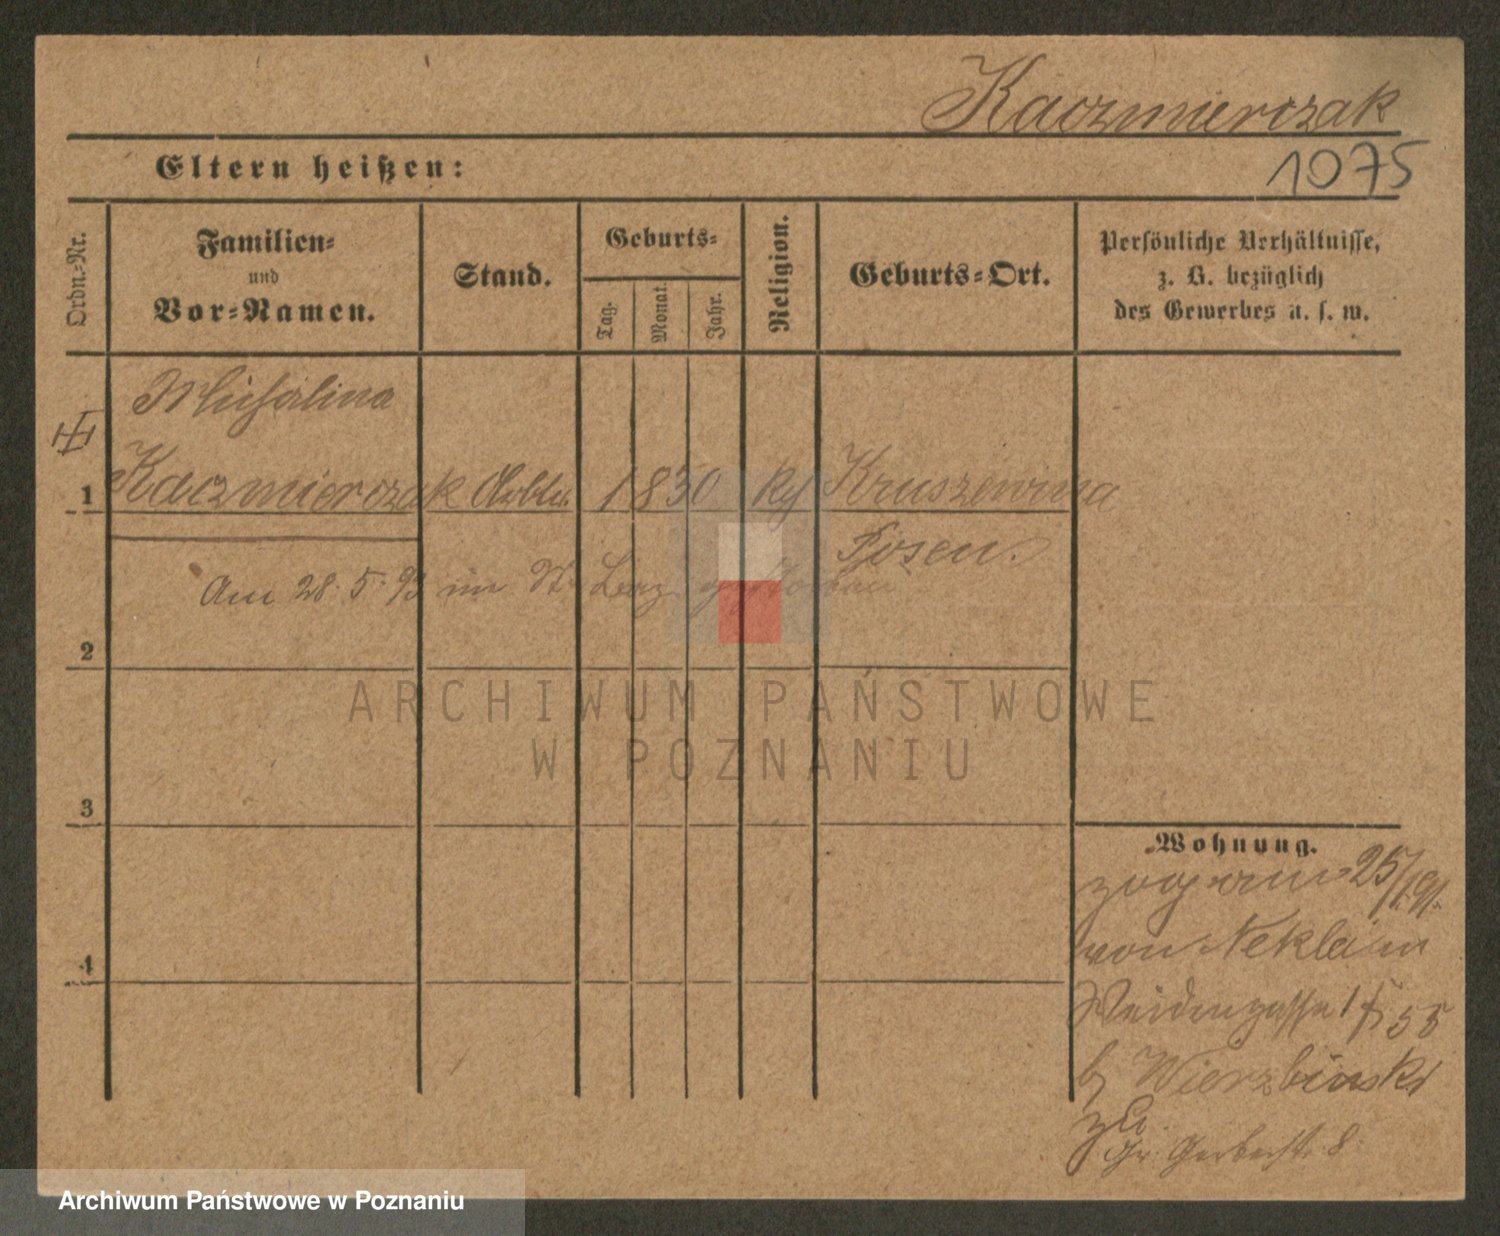 Kaczmierczak
1075
Eltern heißen:
Ordn.-Nr.
Familien-
und
Vor-Namen.
Stand.
Geburts-
Tag.
Monat.
Jahr.
Religion.
Geburts-Ort.
Persönliche Verhältnisse,
z. B. bezüglich
des Gewerbes u. s. w.
Michalina
1 Kaczmierczak 1830 Kruszewina
Posen.
Am 28. 5. 93 im St. Laz. gestorben
2
ARCHIWUM PAŃSTWOWE
W POZNANIU
3
Wohnung.
zog am 25/1.91.
von Nekla in
4
Weidengasse 55
b/ Wierzbinski
zu
Gr. Gerberst. 8
Archiwum Państwowe w Poznaniu